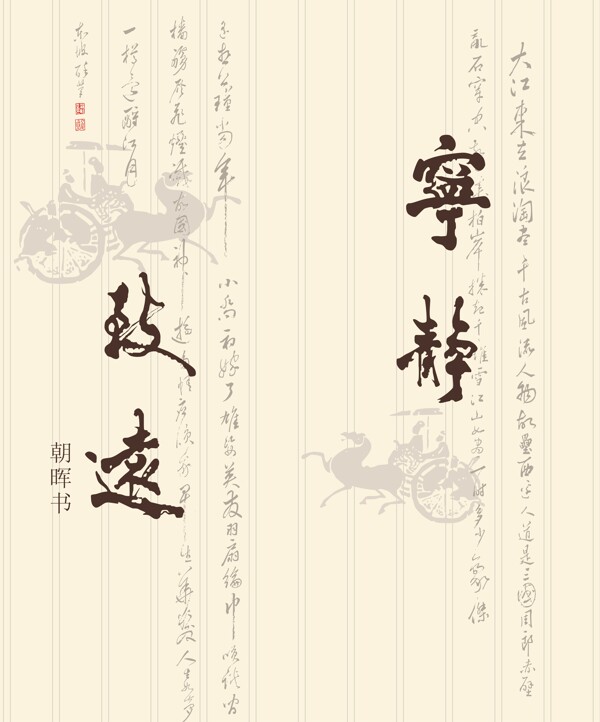 大江東去浪淘盡千古風流人物故壘西邊人道是三國周郎赤壁
亂石穿空驚濤拍岸捲起千堆雪江山如畫一時多少豪傑
寧靜
遙想公瑾當年小喬初嫁了雄姿英發羽扇綸巾談笑間
檣櫓灰飛煙滅故國神遊多情應笑我早生華髮人生如夢
一樽還酹江月
致遠
朝晖书